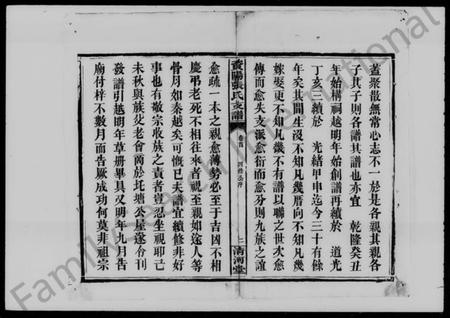 蓋聚散無常心志不一於是各親其親各
子其子則各譜其譜也亦宜 乾隆癸丑
年始構祠越明年始創譜再續於 道光
丁亥三續於 光緒甲申迄今三十有餘
年矣其間生沒不知凡幾厝向不知凡幾
嫁娶更不知凡幾不有譜以聯之世次愈
傳而愈失支派愈衍而愈分則九族之誼
貴陽張氏支譜
卷首
清河堂
愈疏一本之親愈薄勢必至于吉凶不相
慶弔老死不相往來者視至親如途人等
骨肉如秦越矣可慨已夫譜宜續修非好
事也有敬宗收族之責者豈忍坐視耶己
未秋與族父老會商於圫塘公屋遂合刊
發譜引越明年草冊畢具又明年九月告
廟付梓不數月而告厥成功何莫非祖宗
FamilySearch International